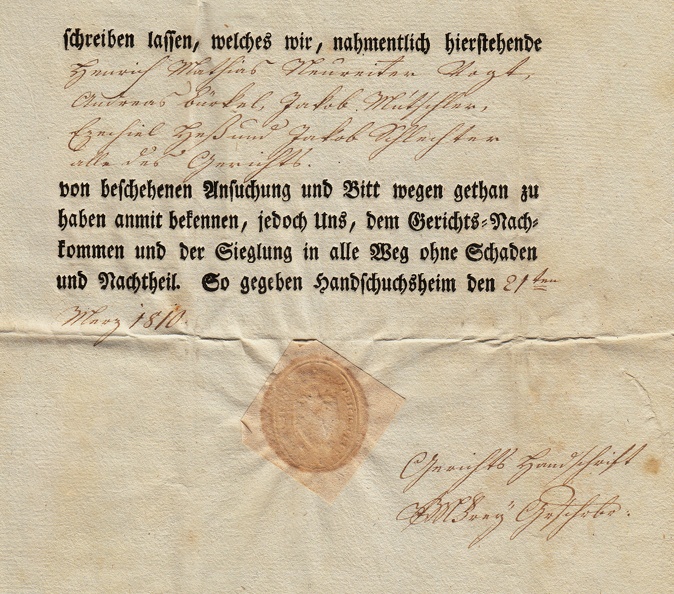 schreiben lassen, welches wir, nahmentlich hierstehende
Henrich Mathias Neureiter Vogt,
Andreas Bürkel, Jakob Mütschler,
Ezechiel Heß und Jakob Schlechter
alle des Gerichts.
von beschehenen Ansuchung und Bitt wegen gethan zu
haben anmit bekennen, jedoch Uns, dem Gerichts-Nach-
kommen und der Sieglung in alle Weg ohne Schaden
und Nachtheil. So gegeben Handschuchsheim den 21ten
Merz 1810.
Gerichts Handschrift